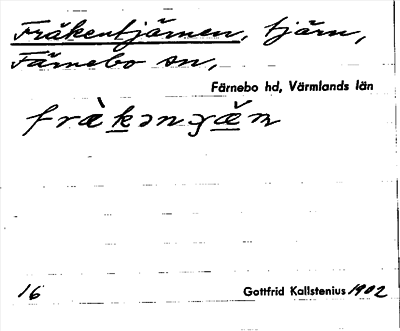 Fräkentjärnen, tjärn,
Färnebo sn,
Färnebo hd, Värmlands län
16
Gottfrid Kallstenius 1902